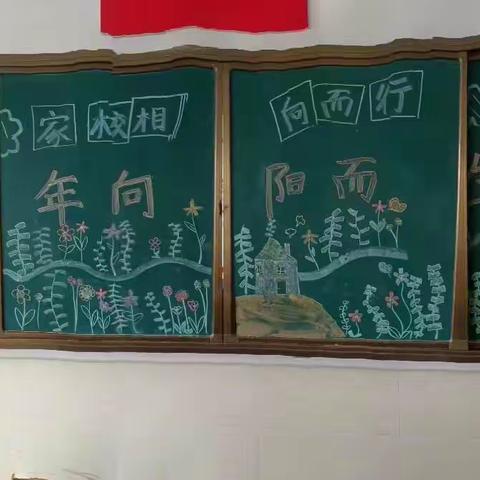 家校相向而行
年向阳而